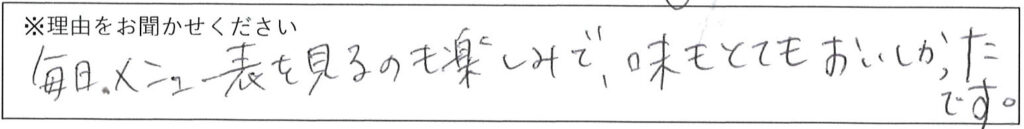 ※理由をお聞かせください
毎日、メニュー表を見るのも楽しみで、味もとてもおいしかった
です。